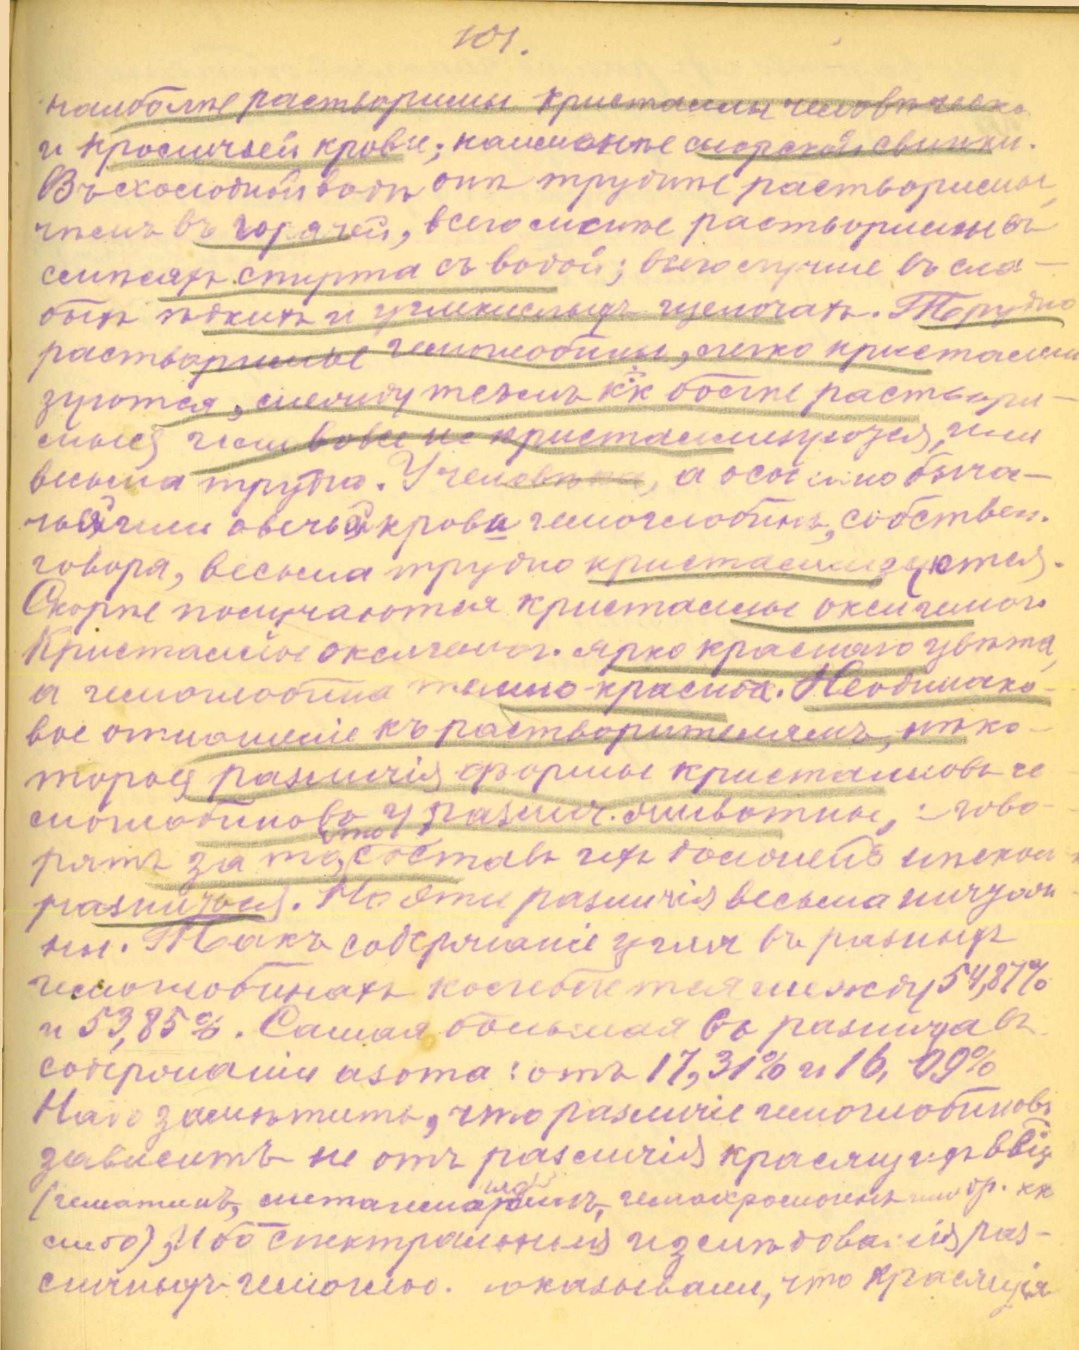 101.
наиболѣе растворимы кристаллы человѣческо
и кроличьей крови; наименѣе морской свинки.
Въ холодной водѣ они труднѣе растворимы,
чѣмъ въ горячей, всего менѣе растворимы въ
смѣсяхъ спирта съ водой; всего лучше въ сла-
быхъ ѣдкихъ и углекислыхъ щелочахъ. Трудно
растворимые гемоглобины, легко кристалли
зуются, между тѣмъ кк болѣе раствори-
мые или вовсе не кристаллизуются, или
весьма трудно. У человѣка, а особенно быча-
чьей или овечьей крови гемоглобинъ, собствен.
говоря, весьма трудно кристаллизуются.
Скорѣе получаются кристаллы оксигемогл.
Кристаллы оксигемог. ярко краснаго цвѣта,
а гемоглобина темно-краснаго. Неодинако-
вое отношеніе къ растворителямъ, нѣко-
торыя различія формы кристалловъ ге
моглобиновъ у различ. животныхъ, гово-
рятъ за то, что составъ ихъ долженъ
различаться. Но эти различія весьма ничтож
ны. Такъ содержаніе угля въ разныхъ
гемоглобинахъ колеблется между 54,87%
и 53,85%. Самая большая разница въ
содержаніи азота: отъ 17,31% и 16,09%
Надо замѣтить, что различіе гемоглобиновъ
зависитъ не отъ различія красящихъ
(гематинъ, метгемоглобинъ, гемохромогенъ или др. кк
либо), ибо спектральныя изслѣдованія раз-
личныхъ гемоглоб. показывали, что красящія